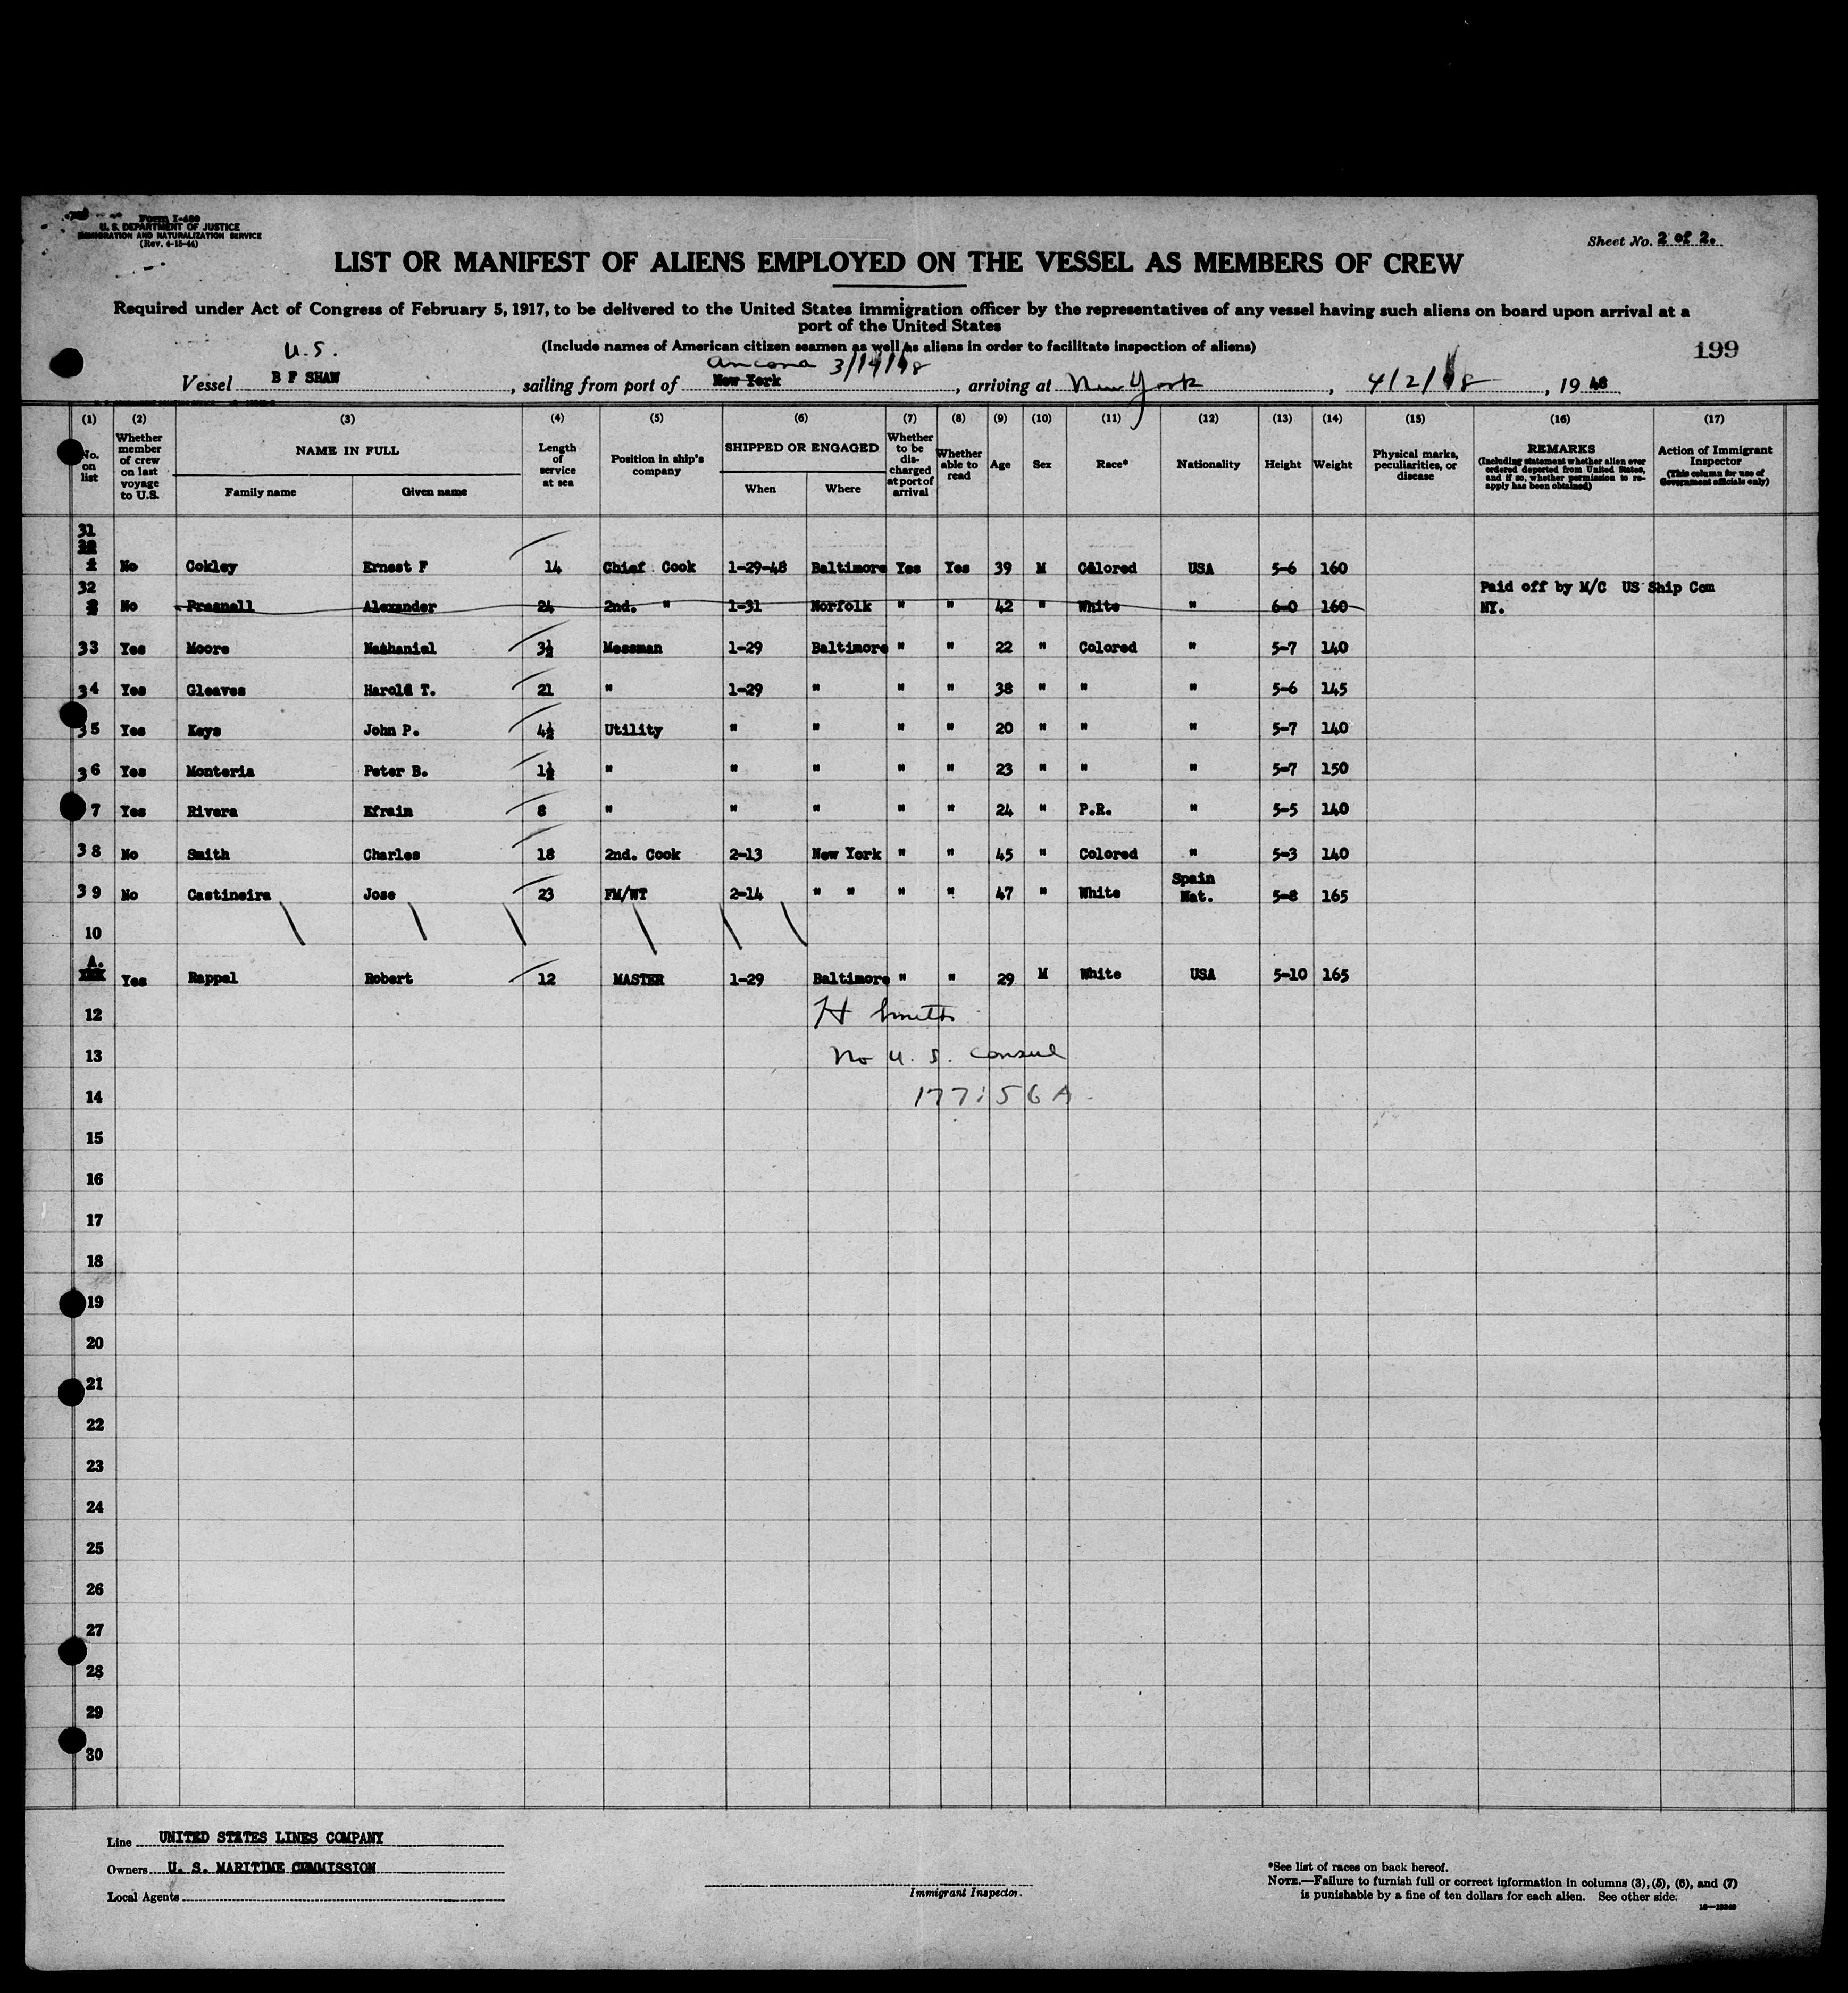 Form I-489
U. S. DEPARTMENT OF JUSTICE
IMMIGRATION AND NATURALIZATION SERVICE
(Rev. 4-15-44)
Sheet No. 2 of 2.
LIST OR MANIFEST OF ALIENS EMPLOYED ON THE VESSEL AS MEMBERS OF CREW
Required under Act of Congress of February 5, 1917, to be delivered to the United States immigration officer by the representatives of any vessel having such aliens on board upon arrival at a
port of the United States
(Include names of American citizen seamen as well as aliens in order to facilitate inspection of aliens)
199
U.S.
Ancona 3/14/48
Vessel B F SHAW, sailing from port of New York, arriving at New York, 4/2/48, 19 48
(1) (2) (3) (4) (5) (6) (7) (8) (9) (10) (11) (12) (13) (14) (15) (16) (17)
No. on list
Whether member of crew on last voyage to U.S.
NAME IN FULL
Family name Given name
Length of service at sea
Position in ship's company
SHIPPED OR ENGAGED
When Where
Whether to be discharged at port of arrival
Whether able to read
Age
Sex
Race*
Nationality
Height
Weight
Physical marks, peculiarities, or disease
REMARKS
(Including statement whether alien ever ordered deported from United States, and if so, whether permission to reapply has been obtained)
Action of Immigrant Inspector
(This column for use of Government officials only)
31
1 No Cokley Ernest F 14 Chief Cook 1-29-48 Baltimore Yes Yes 39 M Colored USA 5-6 160
32 Paid off by M/C US Ship Com
No Prasnall Alexander 24 2nd. " 1-31 Norfolk " " 42 " White " 6-0 160 NY.
33 Yes Moore Nathaniel 3½ Messman 1-29 Baltimore " " 22 " Colored " 5-7 140
34 Yes Gleaves Harold T. 21 " 1-29 " " " 38 " " " 5-6 145
35 Yes Keys John P. 4½ Utility " " " " 20 " " " 5-7 140
36 Yes Monteria Peter B. 1½ " " " " " 23 " " " 5-7 150
7 Yes Rivera Efrain 8 " " " " " 24 " P.R. " 5-5 140
38 No Smith Charles 18 2nd. Cook 2-13 New York " " 45 " Colored " 5-3 140
39 No Castineira Jose 23 FM/WT 2-14 " " " " 47 " White Spain Nat. 5-8 165
10
A.
Yes Rappel Robert 12 MASTER 1-29 Baltimore " " 29 M White USA 5-10 165
12 H Smith
13 No U. S. Consul
14 177:56 A
15
16
17
18
19
20
21
22
23
24
25
26
27
28
29
30
Line UNITED STATES LINES COMPANY
Owners U. S. MARITIME COMMISSION
Local Agents
Immigrant Inspector.
*See list of races on back hereof.
NOTE.—Failure to furnish full or correct information in columns (3), (5), (6), and (7)
is punishable by a fine of ten dollars for each alien. See other side.